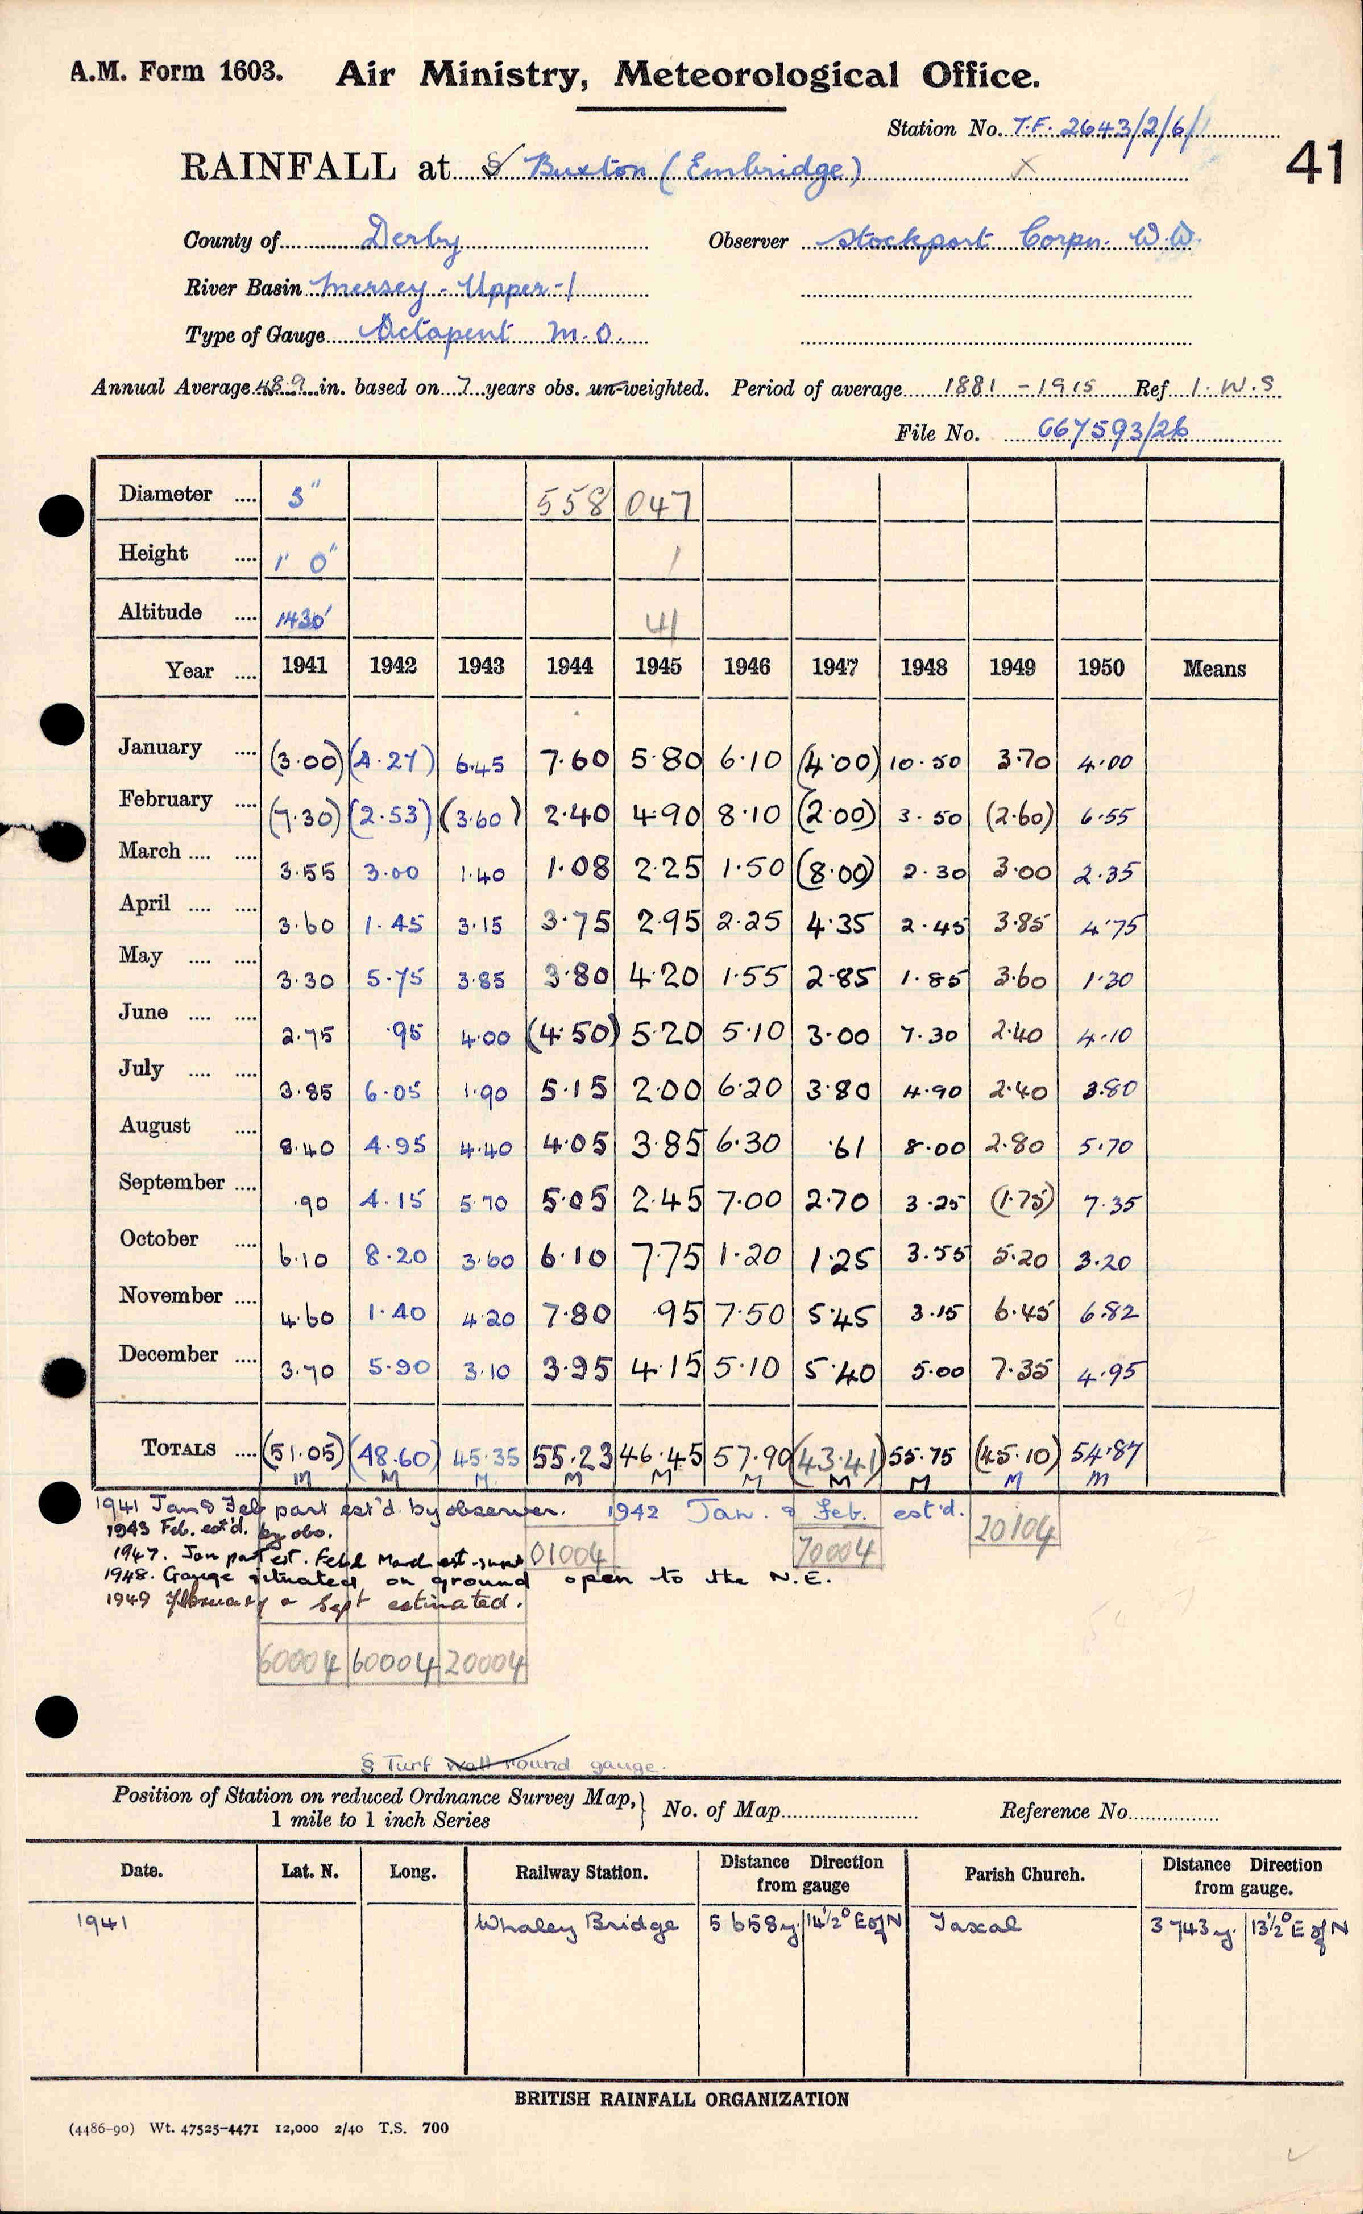 A.M. Form 1603. Air Ministry, Meteorological Office.
Station No. T.F. 2643/2/6/1
41
RAINFALL at § Buxton (Embridge) X
County of Derby Observer Stockport Corpn. W.W.
River Basin Mersey - Upper - 1
Type of Gauge Octapent M.O.
Annual Average 48.9 in. based on 7 years obs. un-weighted. Period of average 1881 - 1915 Ref I.W.S
File No. 667593/26
Diameter .... 5" 558 047
Height .... 1' 0" 1
Altitude .... 1430' 41
Year .... 1941 1942 1943 1944 1945 1946 1947 1948 1949 1950 Means
January .... (3.00) (4.27) 6.45 7.60 5.80 6.10 (4.00) 10.50 3.70 4.00
February .... (7.30) (2.53) (3.60) 2.40 4.90 8.10 (2.00) 3.50 (2.60) 6.55
March .... .... 3.55 3.00 1.40 1.08 2.25 1.50 (8.00) 2.30 3.00 2.35
April .... .... 3.60 1.45 3.15 3.75 2.95 2.25 4.35 2.45 3.85 4.75
May .... .... 3.30 5.75 3.85 3.80 4.20 1.55 2.85 1.85 3.60 1.30
June .... .... 2.75 .95 4.00 (4.50) 5.20 5.10 3.00 7.30 2.40 4.10
July .... .... 3.85 6.05 1.90 5.15 2.00 6.20 3.80 4.90 2.40 3.80
August .... 8.40 4.95 4.40 4.05 3.85 6.30 .61 8.00 2.80 5.70
September .... .90 4.15 5.70 5.05 2.45 7.00 2.70 3.25 (1.75) 7.35
October .... 6.10 8.20 3.60 6.10 7.75 1.20 1.25 3.55 5.20 3.20
November .... 4.60 1.40 4.20 7.80 .95 7.50 5.45 3.15 6.45 6.82
December .... 3.70 5.90 3.10 3.95 4.15 5.10 5.40 5.00 7.35 4.95
TOTALS .... (51.05) (48.60) 45.35 55.23 46.45 57.90 (43.41) 55.75 (45.10) 54.87
M M M M M M M M M M
1941 Jan & Feb part est'd by observer. 1942 Jan. & Feb. est'd.
20104
1943 Feb. est'd. by obs.
1947. Jan part est. Feb & March est.
01004 70004
1948. Gauge situated on ground open to the N.E.
1949 February & Sept estimated.
60004 60004 20004
§ Turf wall round gauge.
Position of Station on reduced Ordnance Survey Map, 1 mile to 1 inch Series } No. of Map Reference No.
Date. Lat. N. Long. Railway Station. Distance Direction from gauge Parish Church. Distance Direction from gauge.
1941 Whaley Bridge 5658y 14½° E of N Taxal 3743y. 13½° E of N
BRITISH RAINFALL ORGANIZATION
(4486-90) Wt. 47525-4471 12,000 2/40 T.S. 700